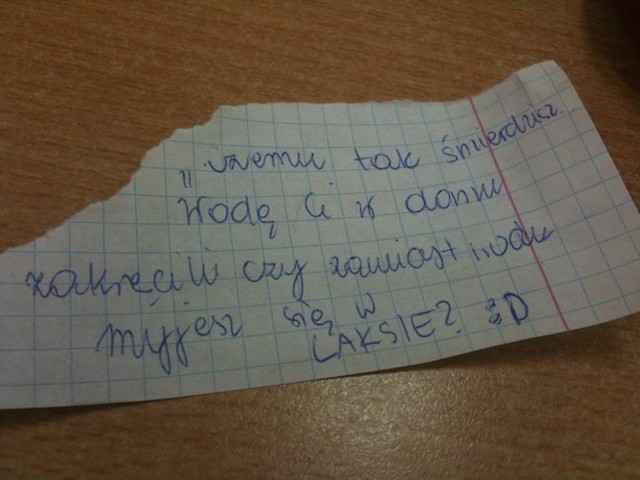 czemu tak śmierdzisz
Wodę Ci w domu
zakręcili czy zamiast wody
myjesz się w
LAKSIE? :D